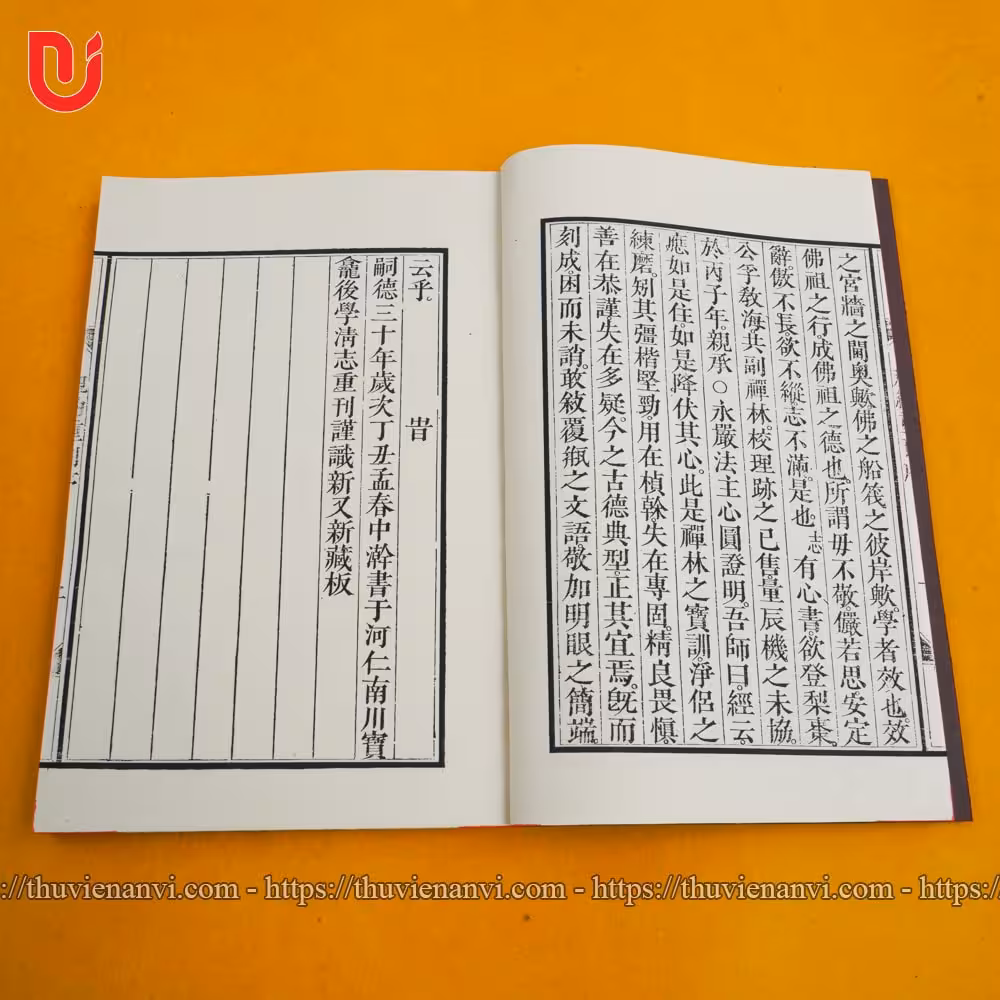 之宮牆之閫奧歟佛之船筏之彼岸歟。學者效也。效
佛祖之行。成佛祖之德也。所謂毋不敬。儼若思。安定
辭。傲不長。欲不縱。志不滿。是也。志有心書。欲登梨棗。
公乎教海。共副禪林。校理跡之已售。量辰機之未協。
於丙子年。親承○永嚴法主心圓證明。吾師曰。經云。
應如是住。如是降伏其心。此是禪林之寶訓。淨侶之
練磨。矧其彊楷堅勁。用在楨榦。失在專固。精良畏愼。
善在恭謹。失在多疑。今之古德典型。正其宜焉。旣而
刻成。困而未誚。敢敍覆瓿之文語。敬加明眼之簡端。
云乎。
旹
嗣德三十年歲次丁丑孟春中澣書于河仁南川寶
龕後學淸志重刊謹識新又新藏板
://thuvienanvi.com - https://thuvienanvi.com - https://thuvienanvi.com - https:/